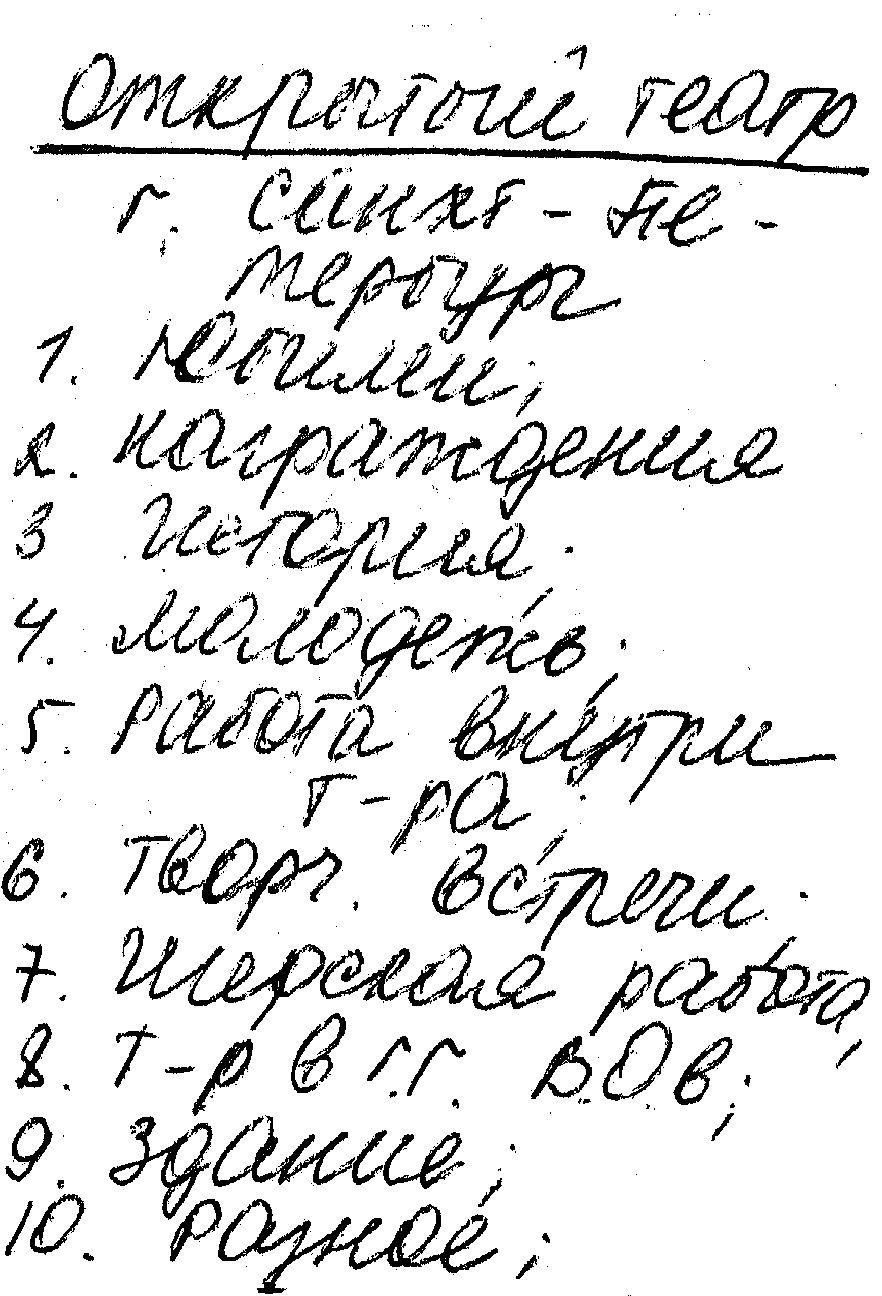 Открытый театр
г. Санкт-Пе-
тербург
1. Юбилеи;
2. Награждения
3 История;
4. Молодежь;
5. Работа внутри
т-ра;
6. Творч. встречи;
7. Шефская работа;
8. Т-р в г.г. В.О.в;
9. Здание;
10. Разное;